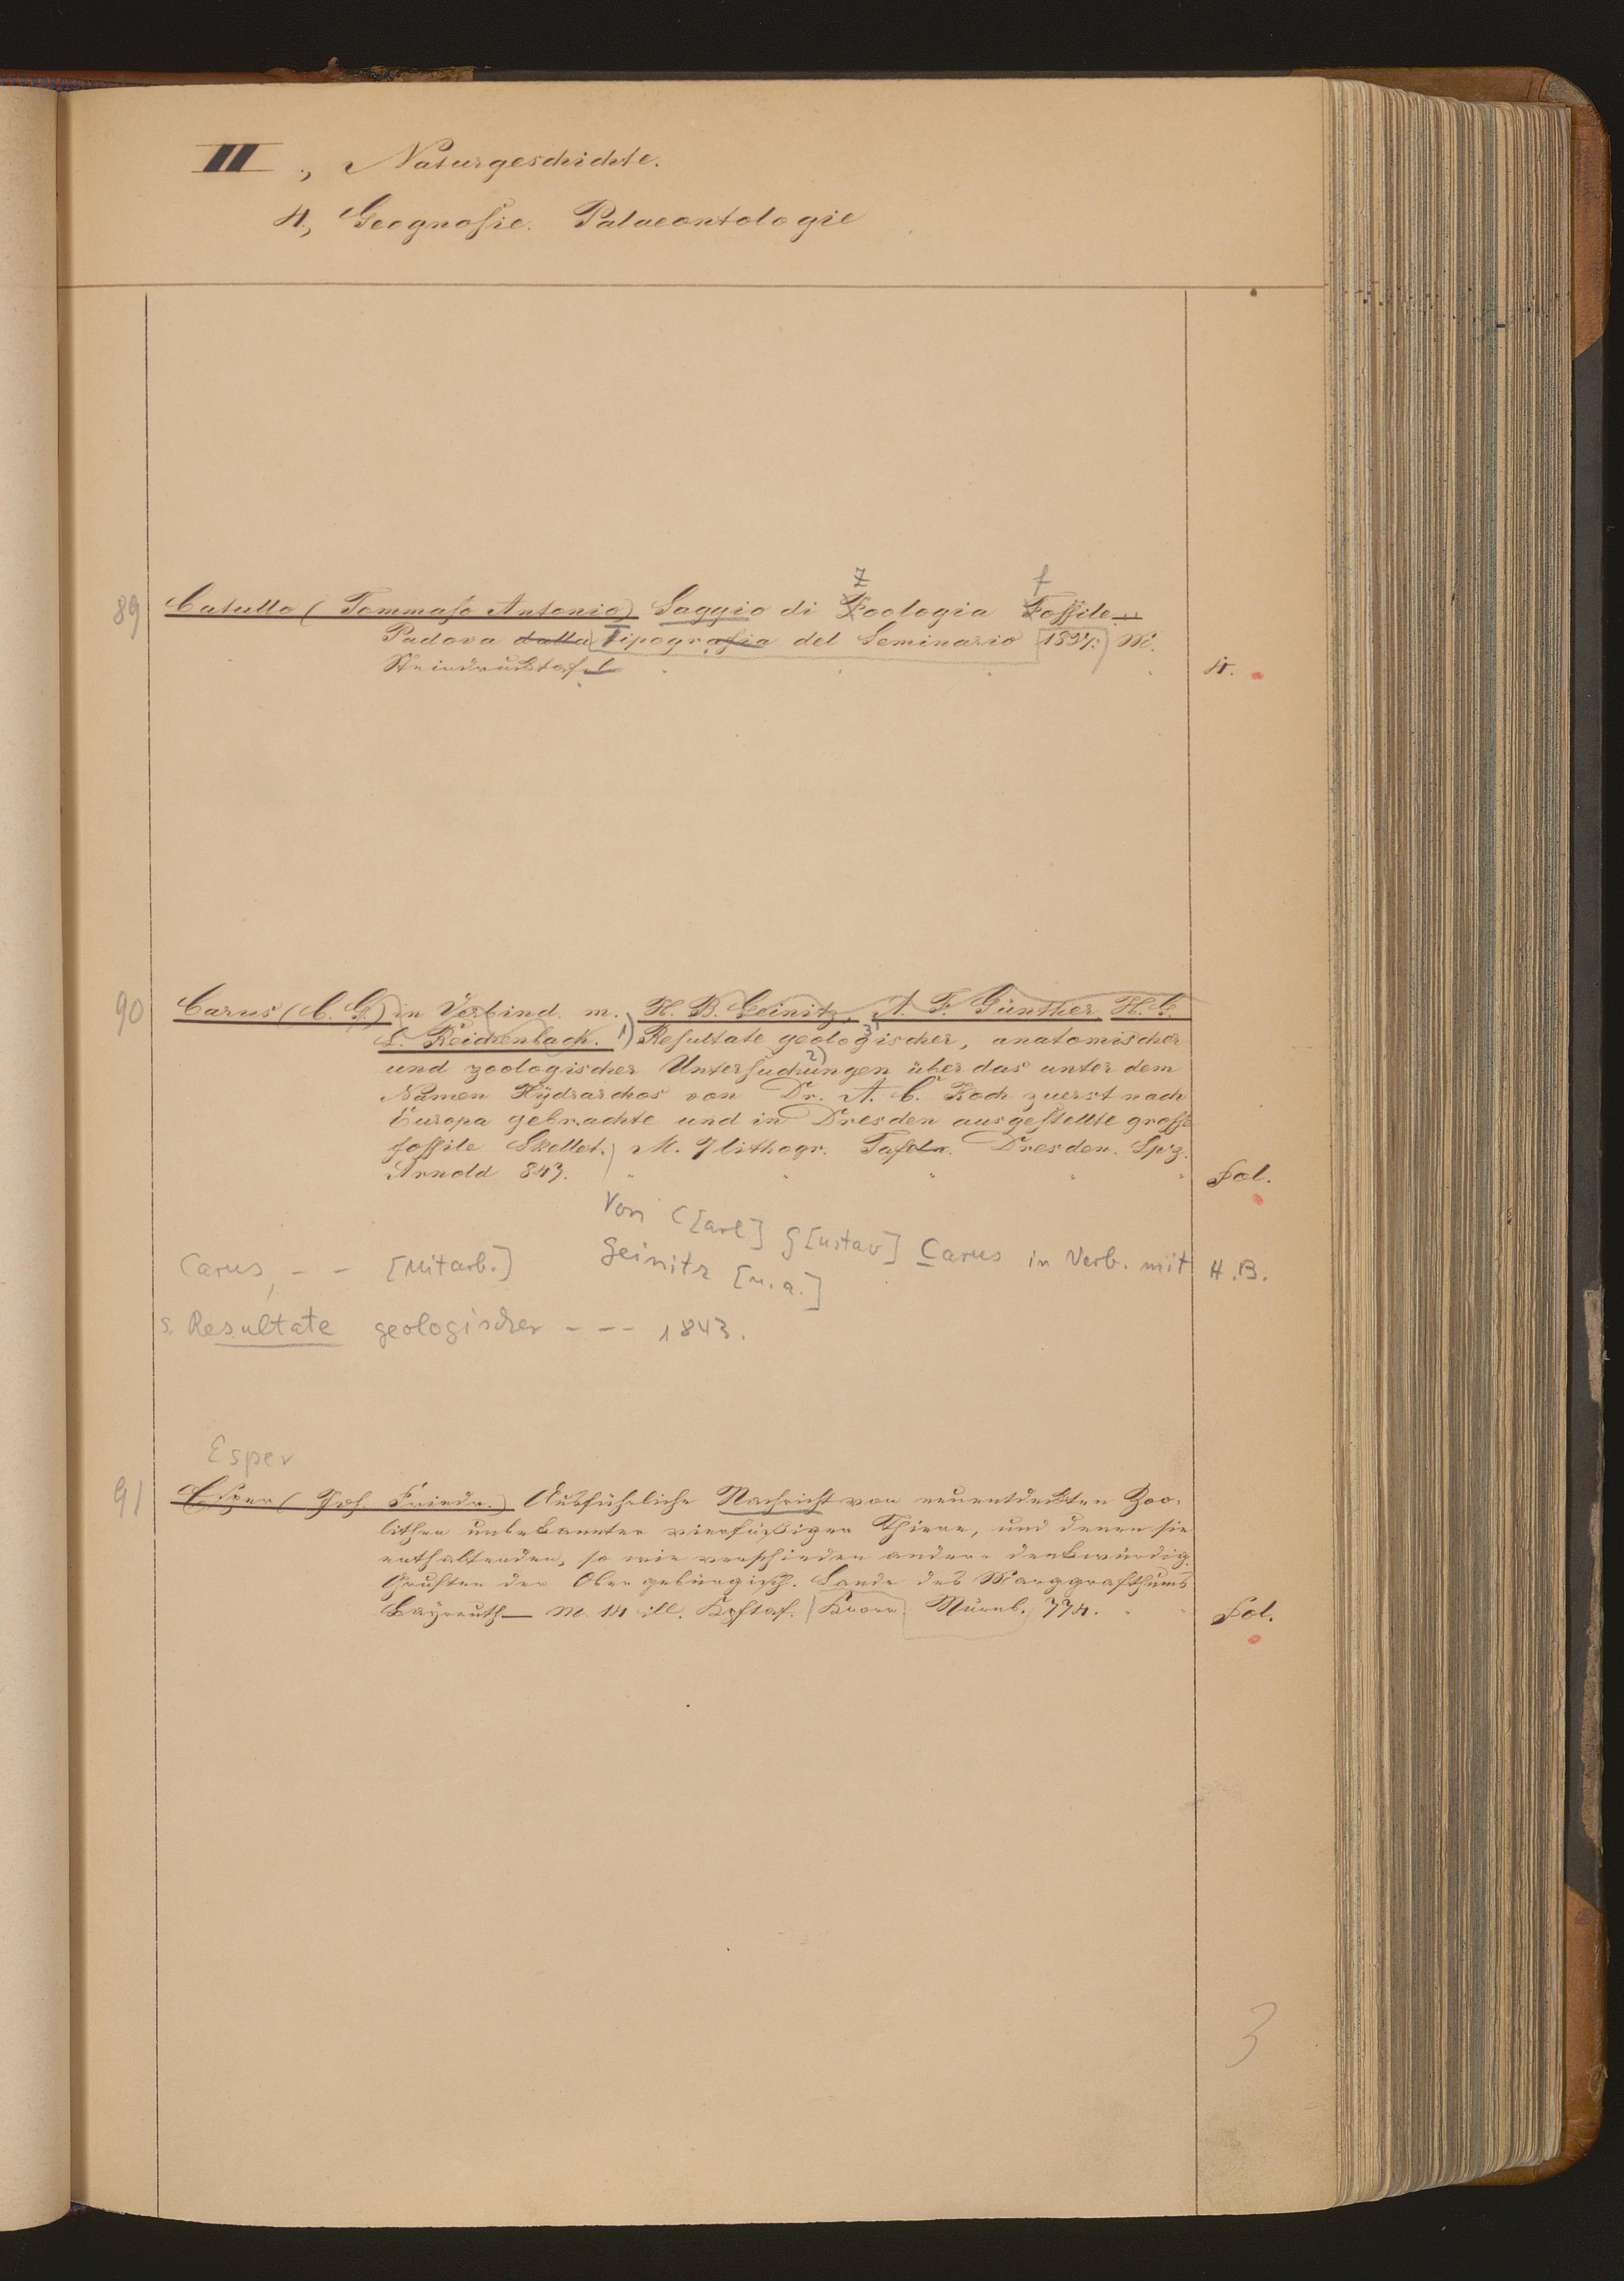 II., Naturgeschichte.
4., Geognoſie. Palaeontologie
z f
89 Catullo (Tommaſo Antonio) Saggio di Zoologia Foſſile
Padova dalla Tipografia del Seminario 1827. M.
Steindrucktafel 4.
90 Carus (C. G.) in Verbind. m. H. B. Geinitz, A. F. Günther, H. G.
L. Reichenbach. 1) Reſultate geologischer, 3) anatomischer
und zoologischer Unterſuchungen 2) über das unter dem
Namen Hÿdrarchos von Dr. A. C. Koch zuerst nach
Europa gebrachte und in Dresden ausgeſtellte groſſe
foſſile Skellet. M. 7 lithogr. Tafeln. Dresden. Lpz.
Arnold 843. Fol.
Von C[arl] G[ustav] Carus in Verb. mit H.B.
Geinitz [u.a.]
Carus, - - [Mitarb.]
s. Resultate geologischer - - - 1843.
Esper
91 Eſper (Joh. Friedr.) Ausführliche Nachricht von neuentdeckten Zoo-
lithen unbekannter vierfüßiger Thiere, und denen sie
enthaltenden, so wie verschieden andern denkwürdig.
Gruften der Obergebürgisch. Lande des Marggrafthums
Baÿreuth — M. 14 ill. Kpftaf. Knorr. Nürnb. 774. Fol.
3